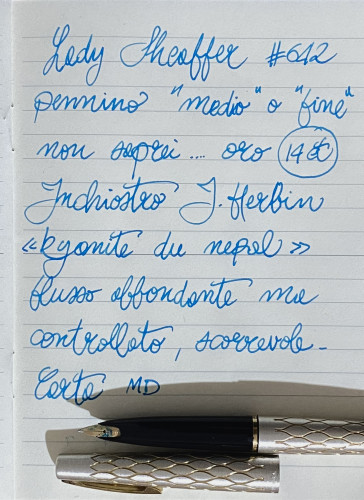 Lady Sheaffer #642
pennino "medio" o "fine"
non saprei .... oro 14 ct
Inchiostro J. Herbin
«kyanite du nepal»
flusso abbondante ma
controllato, scorrevole -
Carta MD